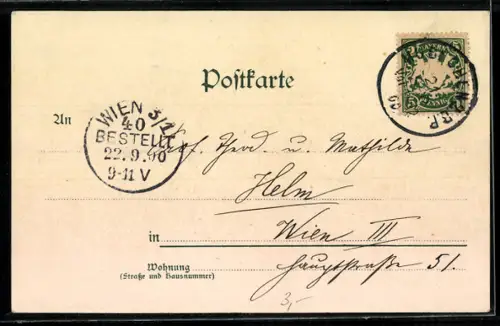 Postkarte
BAYERN
5
PFENNIG
WIEN 3/1
40
BESTELLT
22.9.00
9-11 V
An
Prof. Theod. u. Mathilde
Helm
in Wien III
Wohnung Hauptstraße 51.
(Straße und Hausnummer)
3,-